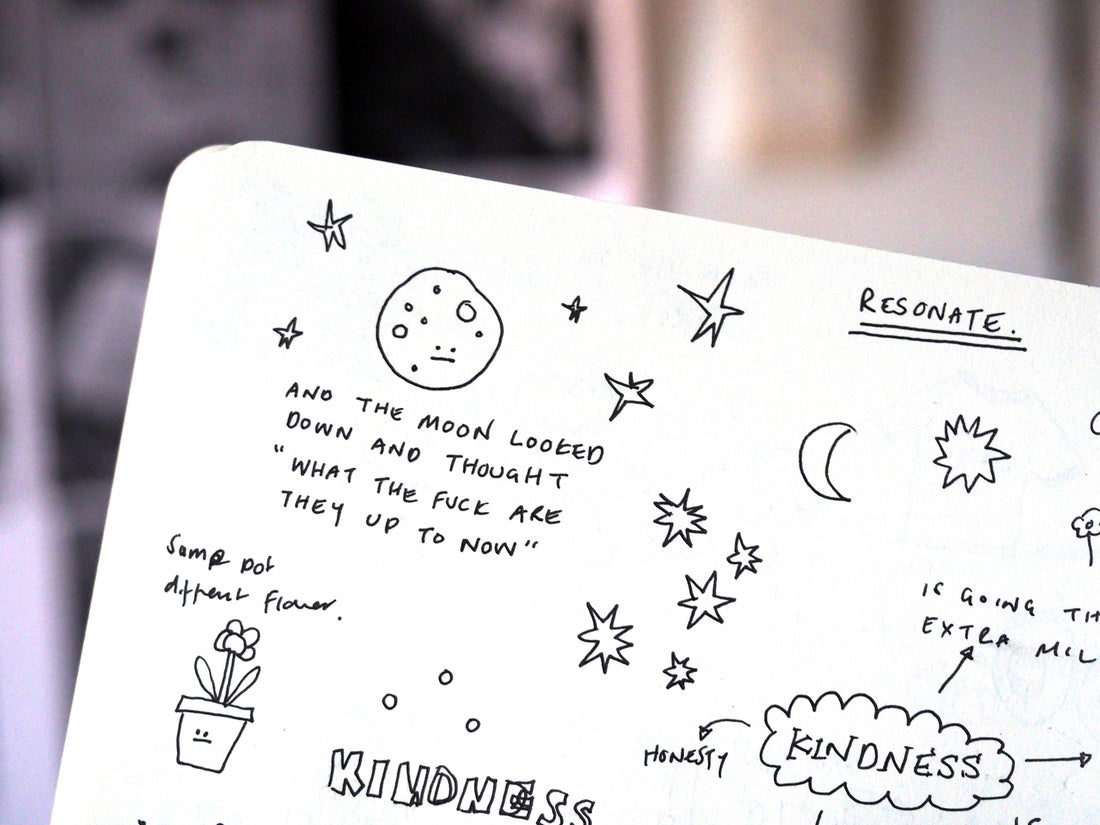 RESONATE.
AND THE MOON LOOKED
DOWN AND THOUGHT
"WHAT THE FUCK ARE
THEY UP TO NOW"
Same pot
different flower.
IS GOING TH
EXTRA MIL
HONESTY
KINDNESS
KINDNESS